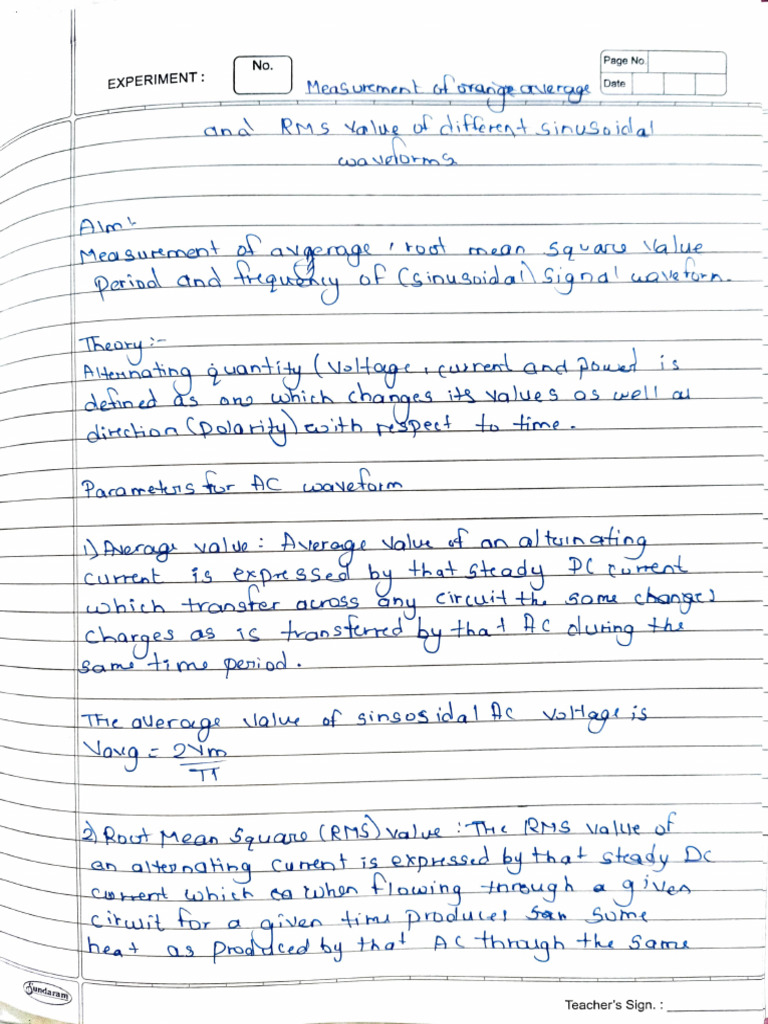 EXPERIMENT :
No.
Page No.
Date
Measurement of orange average
and RMS value of different sinusoidal
waveforms
Aim:
Measurement of avgerage, root mean square value
period and frequency of (sinusoidal) signal waveform.
Theory:-
Alternating quantity (voltage, current and power) is
defined as one which changes its values as well as
direction (polarity) with respect to time.
Parameters for AC waveform
1) Average value: Average value of an alternating
current is expressed by that steady DC current
which transfer across any circuit the same change)
charges as is transferred by that AC during the
same time period.
The average value of sinsosidal AC voltage is
Vavg = 2Vm
π
2) Root Mean Square (RMS) value : The RMS value of
an alternating current is expressed by that steady DC
current which when flowing through a given
circuit for a given time produces some
heat as produced by that AC through the same
Sundaram
Teacher's Sign. :